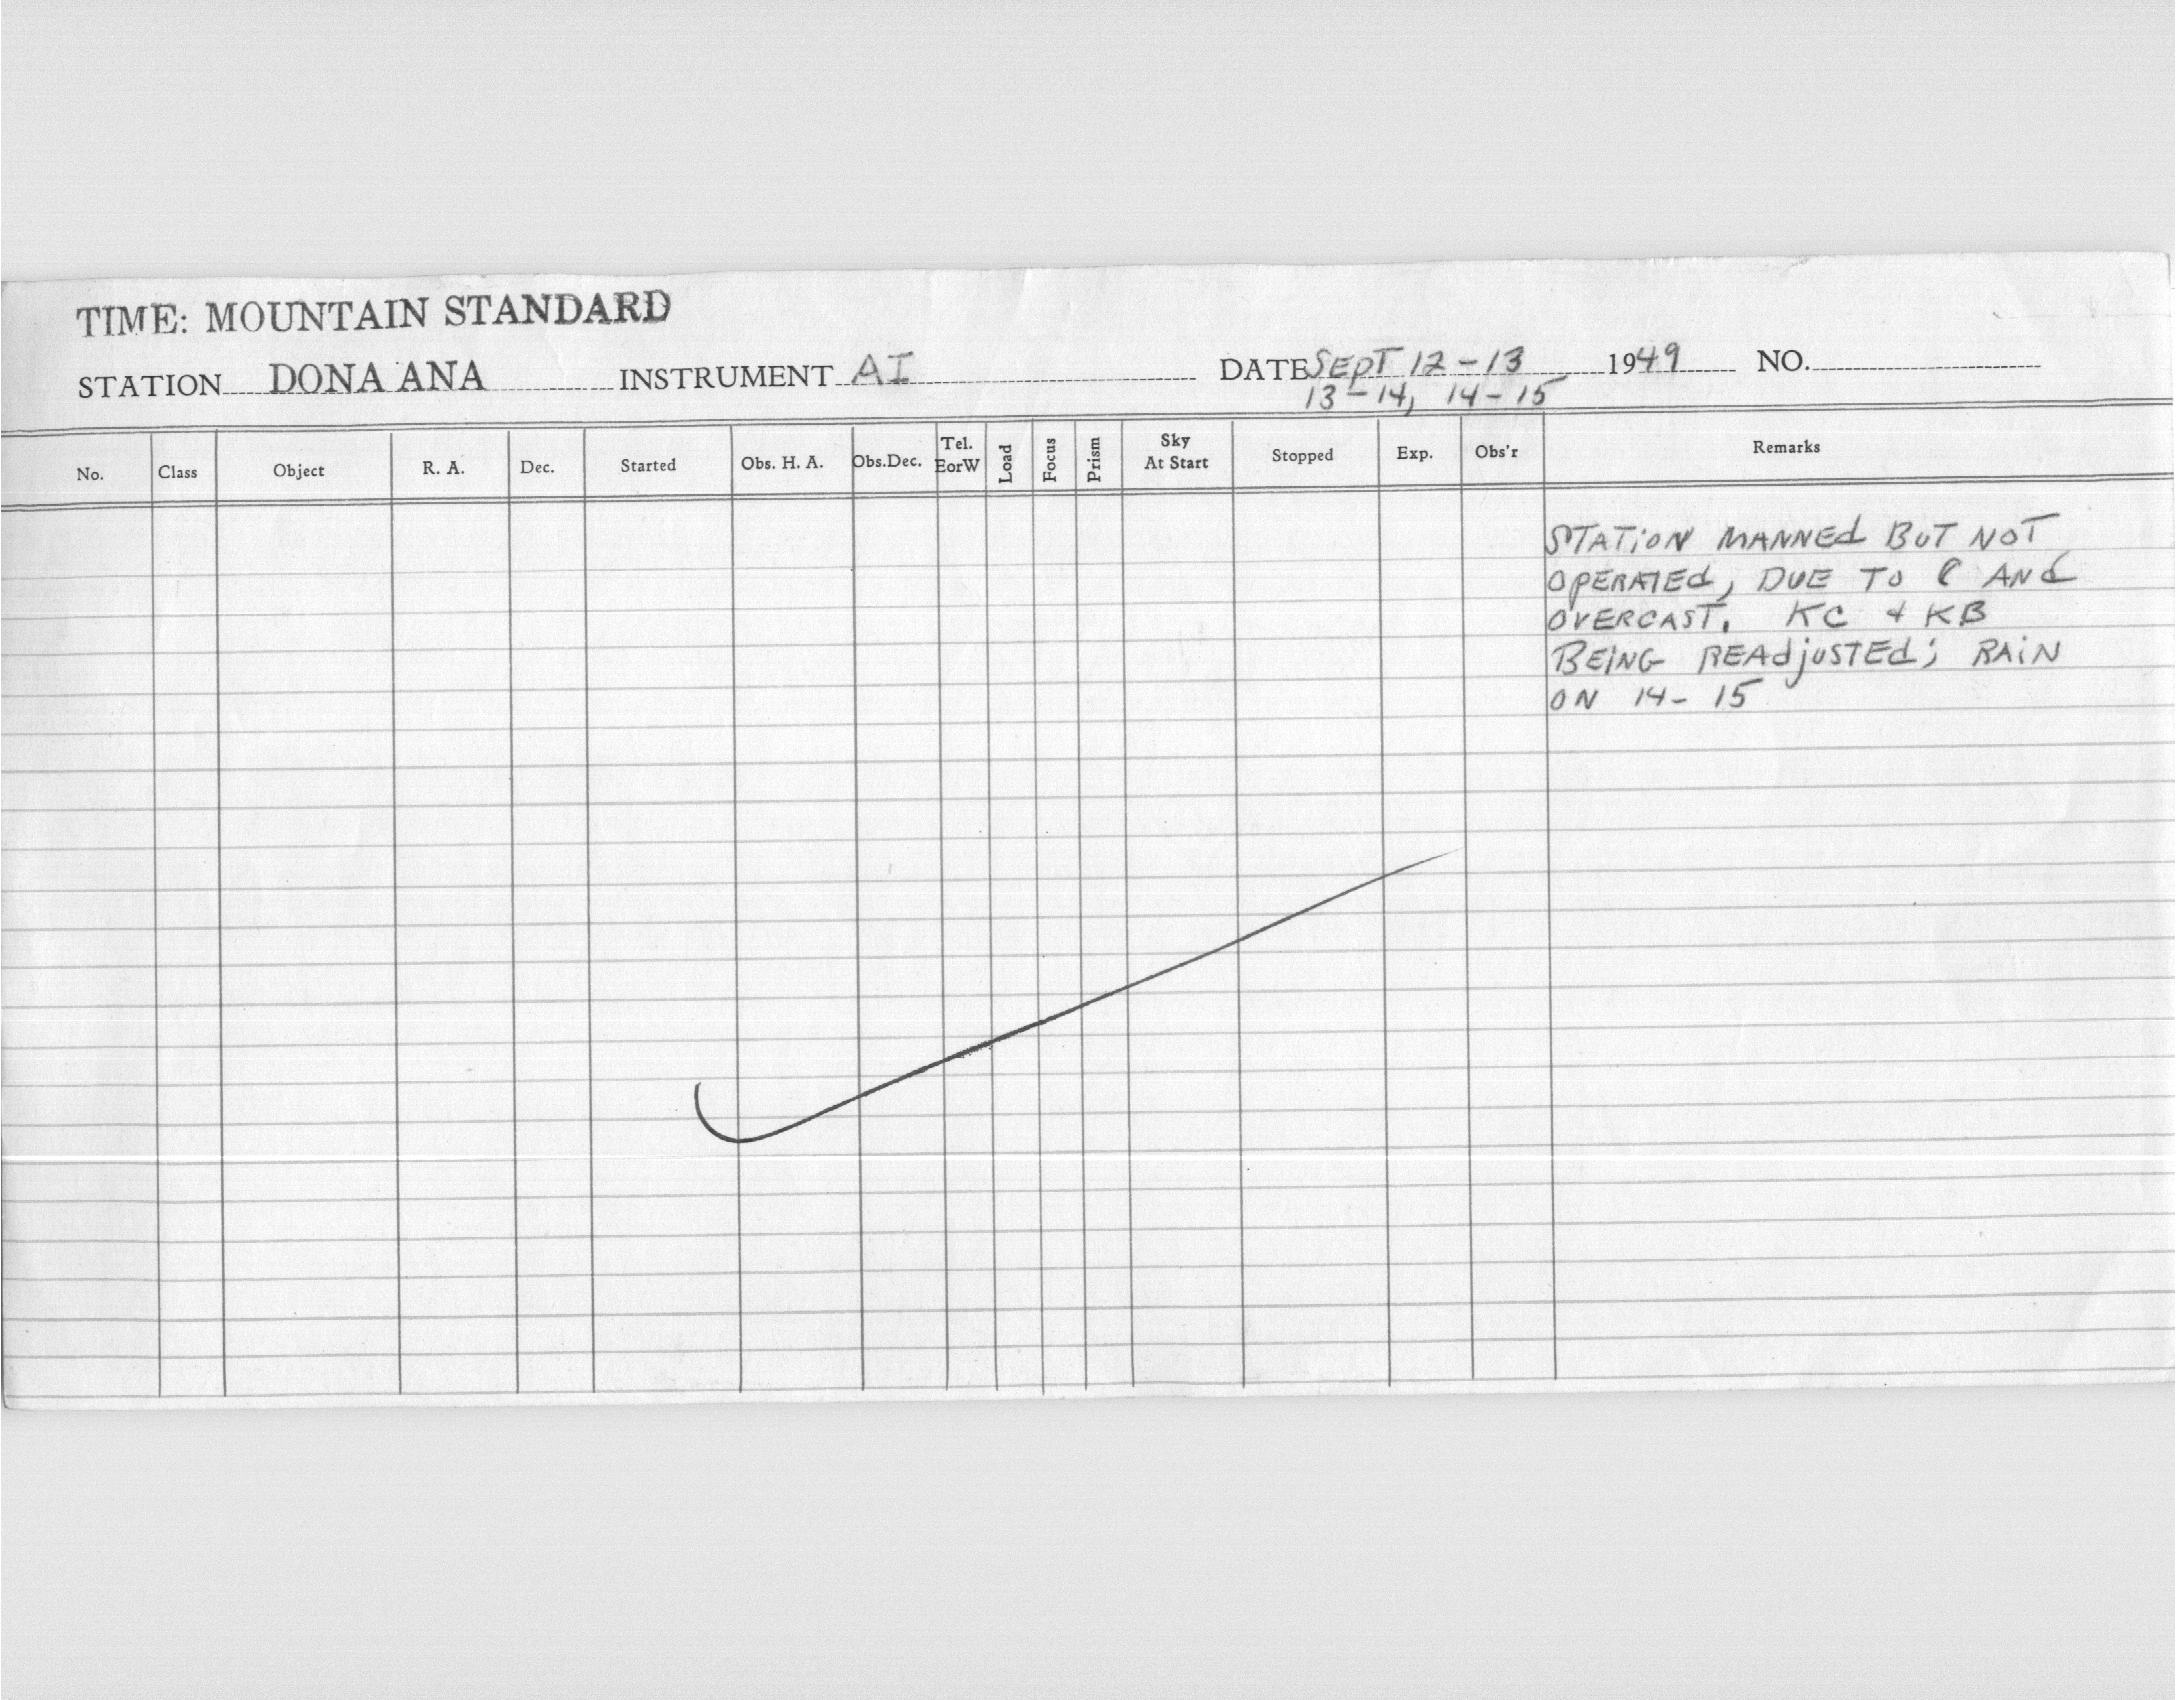 TIME: MOUNTAIN STANDARD
STATION DONA ANA INSTRUMENT AI DATE SEPT 12-13 1949 NO.
13-14, 14-15
No. Class Object R. A. Dec. Started Obs. H. A. Obs.Dec. Tel. EorW Load Focus Prism Sky At Start Stopped Exp. Obs'r Remarks
STATION MANNEd BUT NOT
OPERATEd, DUE TO ☾ ANd
OVERCAST. KC & KB
BEING REAdjUSTEd; RAiN
ON 14-15